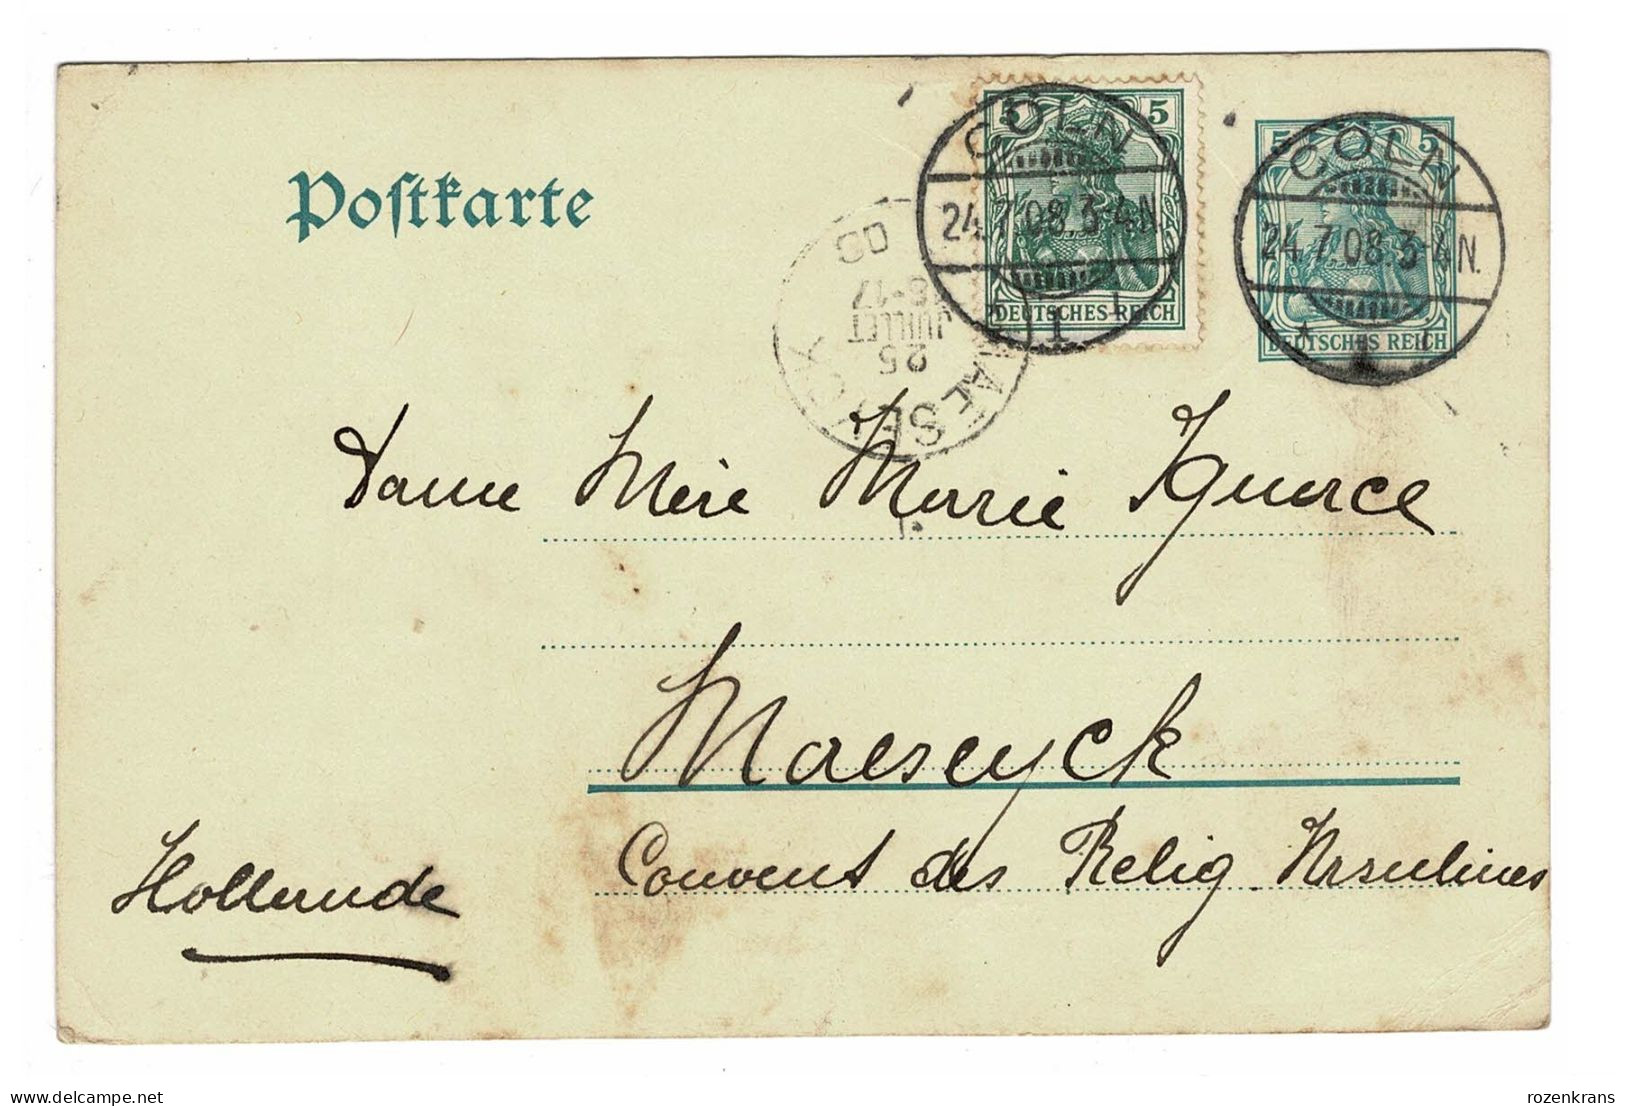 Postkarte
5 5
DEUTSCHES REICH
CÖLN
24.7.08.3-4N.
1
5 5
DEUTSCHES REICH
CÖLN
24.7.08.3-4N.
MAESEYCK
25
JUILLET
16-17
08
Dame Mère Marie Ignace
Maeseyck
Convent des Relig. Ursulines
Hollande
delcampe.net
rozenkrans